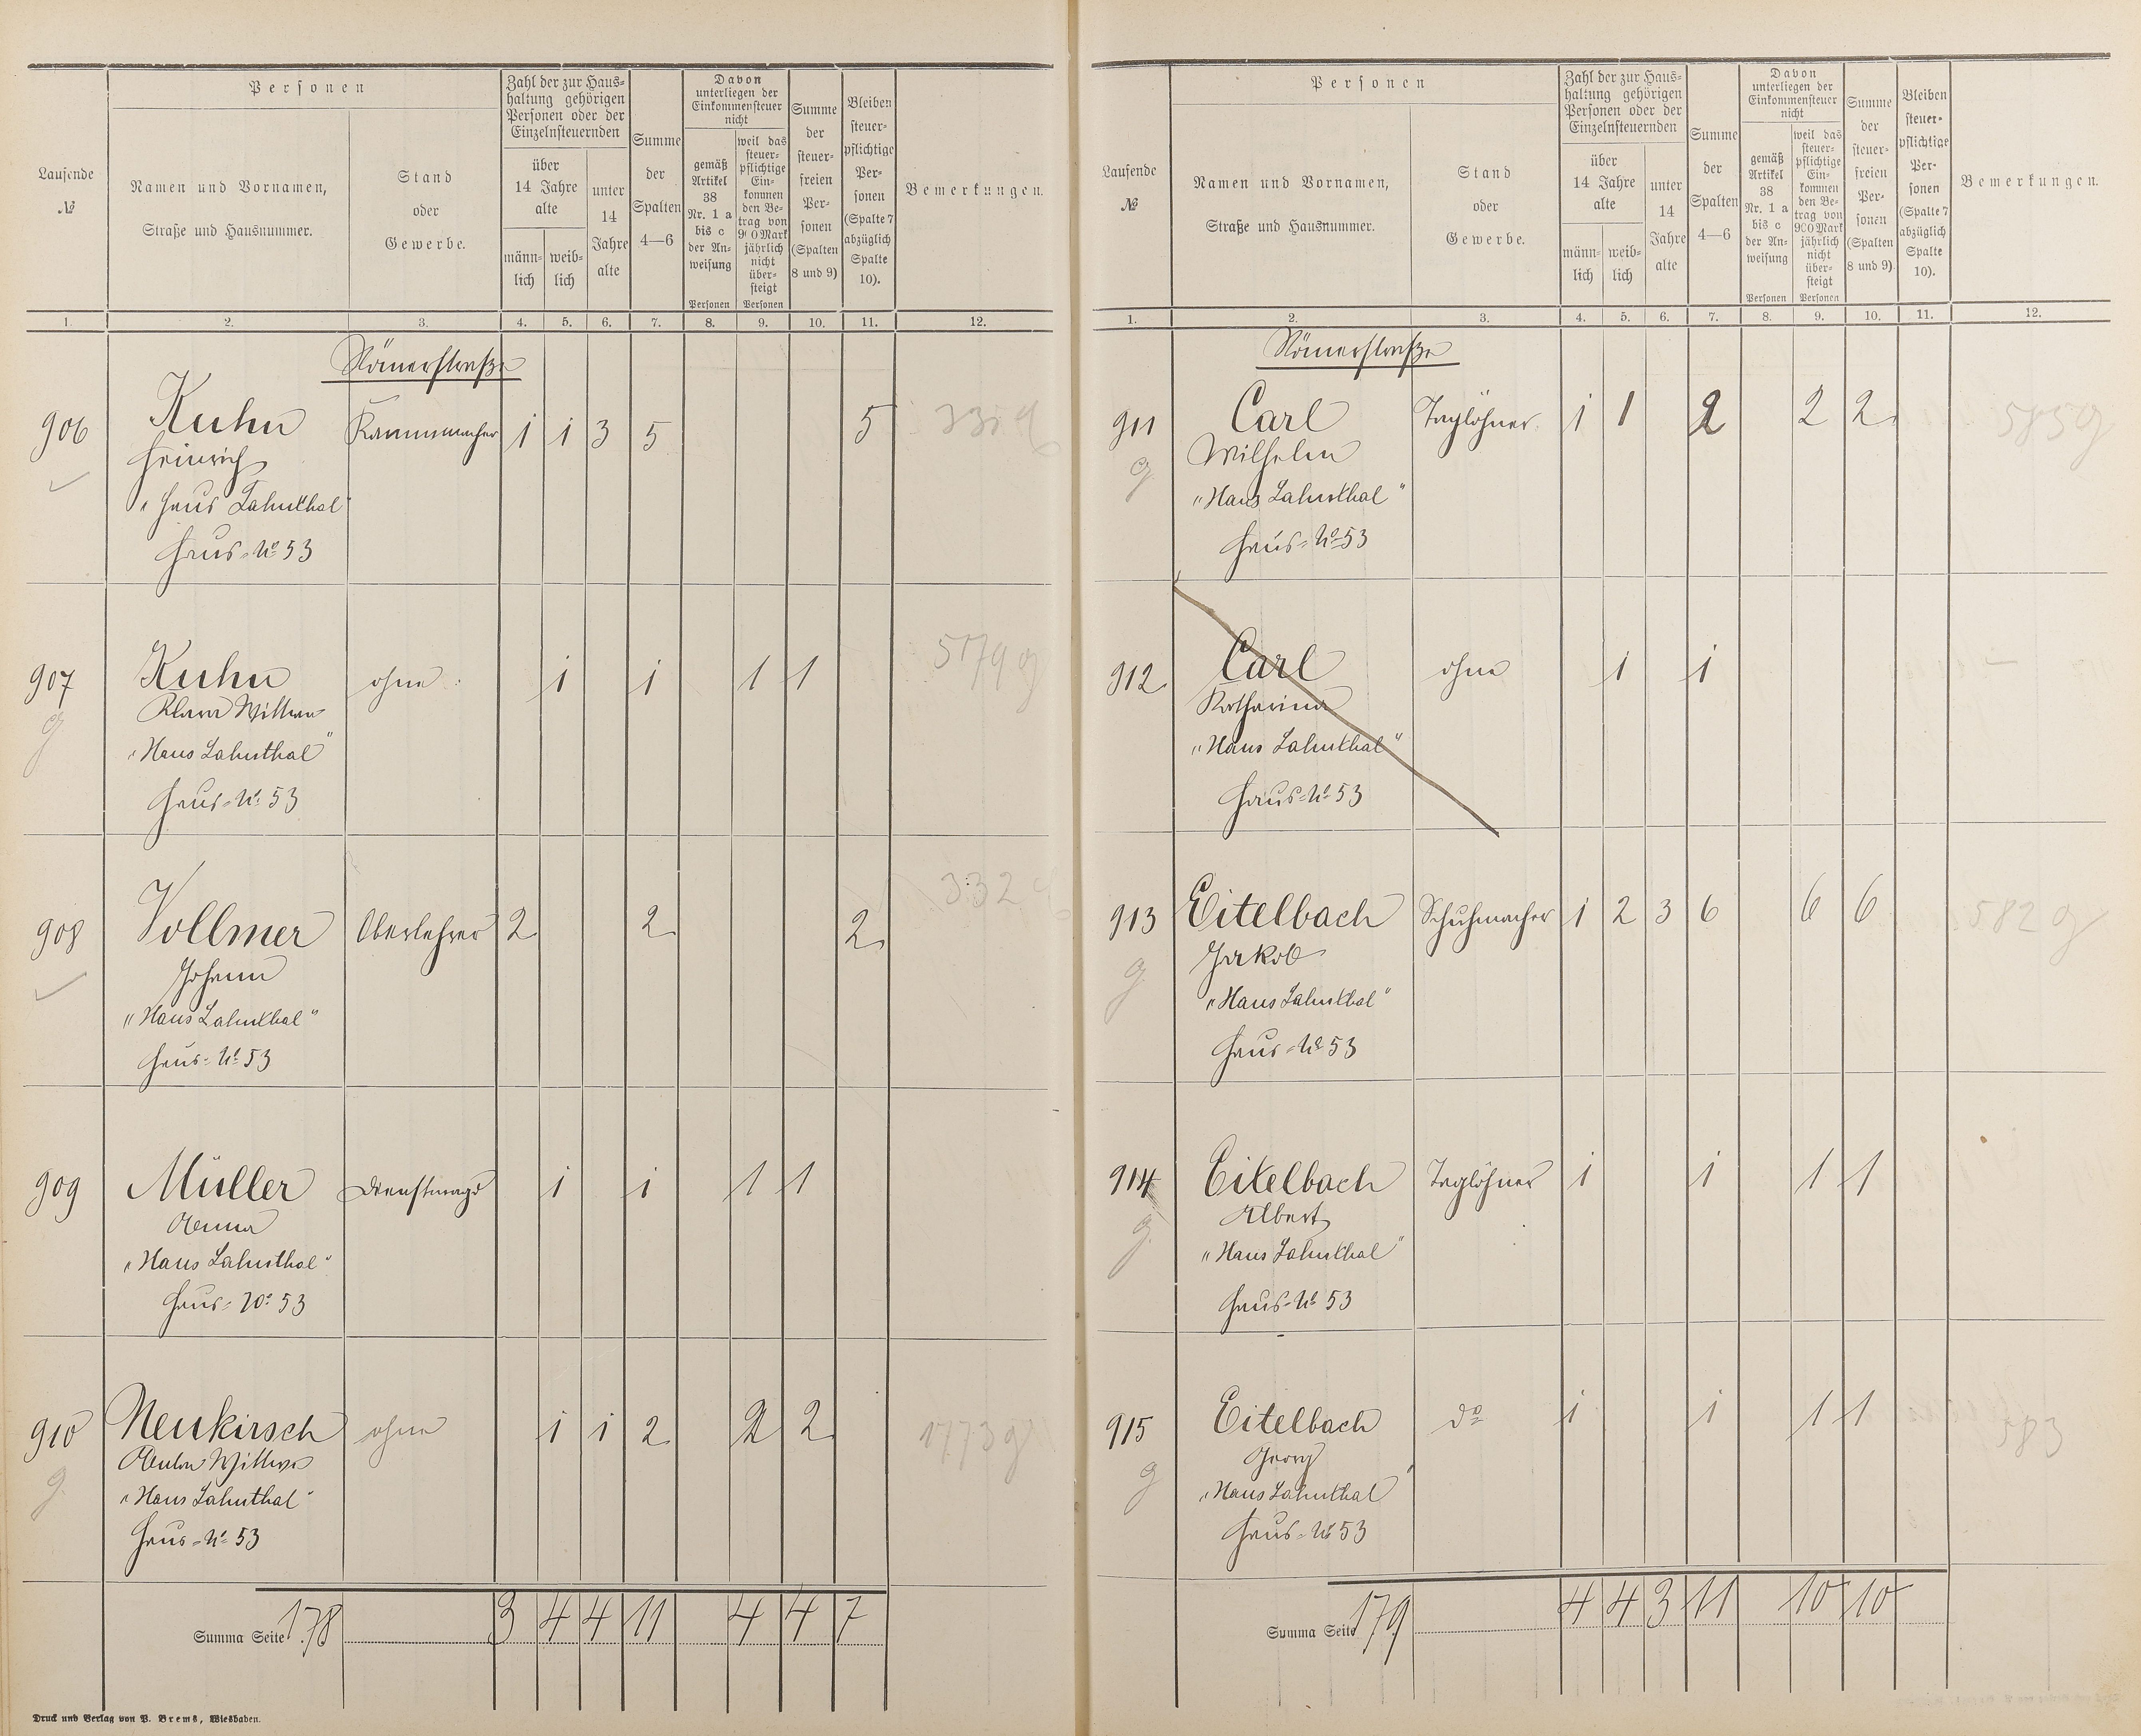 Laufende
№
Personen
Namen und Vornamen,
Straße und Hausnummer.
Stand
oder
Gewerbe.
Zahl der zur Haus-
haltung gehörigen
Personen oder der
Einzelnsteuernden
über
14 Jahre
alte
männ-
lich
weib-
lich
unter
14
Jahre
alte
Summe
der
Spalten
4—6
Davon
unterliegen der
Einkommensteuer
nicht
gemäß
Artikel
38
Nr. 1 a
bis c
der An-
weisung
Personen
weil das
steuer-
pflichtige
Ein-
kommen
den Be-
trag von
900 Mark
jährlich
nicht
über-
steigt
Personen
Summe
der
steuer-
freien
Per-
sonen
(Spalten
8 und 9)
Bleiben
steuer-
pflichtige
Per-
sonen
(Spalte 7
abzüglich
Spalte
10).
Bemerkungen.
1. 2. 3. 4. 5. 6. 7. 8. 9. 10. 11. 12.
Römerstraße
906 Kuhn Kammmacher 1 1 3 5 5
Heinrich
"Haus Lahnthal"
Haus-No 53
907 Kuhn ohne 1 1 1 1 5179 g
g Klara Wittwe
"Haus Lahnthal"
Haus-No 53
908 Vollmer Oberlehrer 2 2 2 332
Johann
"Haus Lahnthal"
Haus-No 53
909 Müller Dienstmagd 1 1 1 1
Anna
"Haus Lahnthal"
Haus-No 53
910 Neukirsch ohne 1 1 2 2 2 1773 g
g Anton Wittwe
"Haus Lahnthal"
Haus-No 53
Summa Seite 178 3 4 4 11 4 4 7
Druck und Verlag von P. Brems, Wiesbaden.
Laufende
№
Personen
Namen und Vornamen,
Straße und Hausnummer.
Stand
oder
Gewerbe.
Zahl der zur Haus-
haltung gehörigen
Personen oder der
Einzelnsteuernden
über
14 Jahre
alte
männ-
lich
weib-
lich
unter
14
Jahre
alte
Summe
der
Spalten
4—6
Davon
unterliegen der
Einkommensteuer
nicht
gemäß
Artikel
38
Nr. 1 a
bis c
der An-
weisung
Personen
weil das
steuer-
pflichtige
Ein-
kommen
den Be-
trag von
900 Mark
jährlich
nicht
über-
steigt
Personen
Summe
der
steuer-
freien
Per-
sonen
(Spalten
8 und 9)
Bleiben
steuer-
pflichtige
Per-
sonen
(Spalte 7
abzüglich
Spalte
10).
Bemerkungen.
1. 2. 3. 4. 5. 6. 7. 8. 9. 10. 11. 12.
Römerstraße
911 Carl Taglöhner 1 1 2 2 2 585 g
g Wilhelm
"Haus Lahnthal"
Haus-No 53
912 Carl ohne 1 1
Katharina
"Haus Lahnthal"
Haus-No 53
913 Eitelbach Schuhmacher 1 2 3 6 6 6 582 g
g Jakob
"Haus Lahnthal"
Haus-No 53
914 Eitelbach Taglöhner 1 1 1 1
g Albert
"Haus Lahnthal"
Haus-No 53
915 Eitelbach do 1 1 1 1 583
g Georg
"Haus Lahnthal"
Haus-No 53
Summa Seite 179 4 4 3 11 10 10